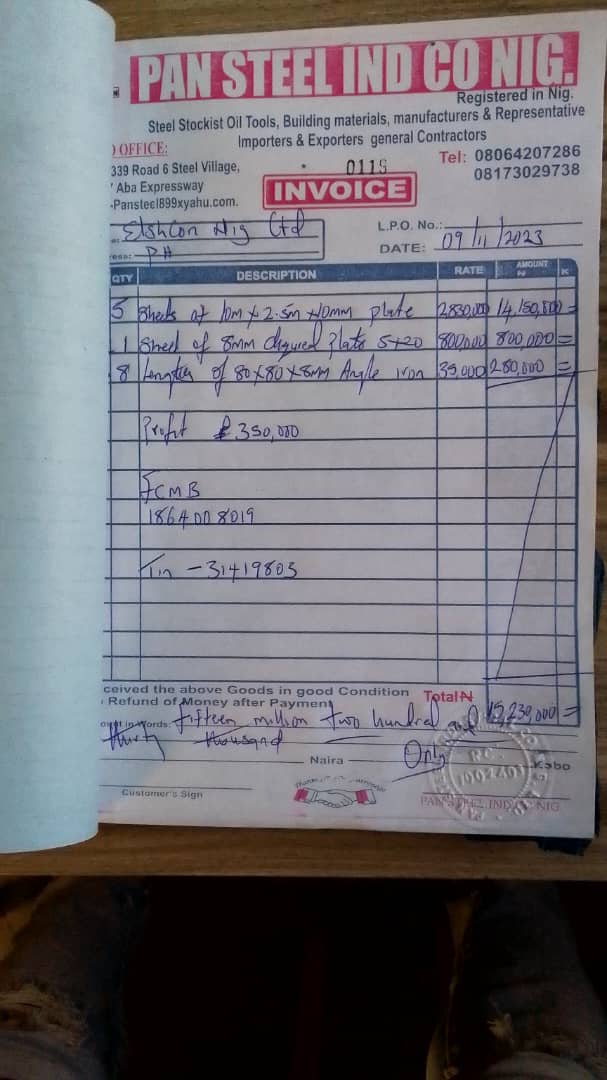 PAN STEEL IND CO NIG.
Registered in Nig.
Steel Stockist Oil Tools, Building materials, manufacturers & Representative
Importers & Exporters general Contractors
OFFICE:
339 Road 6 Steel Village,
Aba Expressway
-Pansteel899xyahu.com.
Tel: 08064207286
08173029738
0115
INVOICE
Elshcon Nig Ltd
PH
L.P.O. No.:
DATE: 09/11/2023
QTY DESCRIPTION RATE AMOUNT ₦ K
5 Sheets of 10m x 2.5m x 10mm plate 2830,000 14,150,000 =
1 Sheet of 8mm Plate 5x20 800,000 800,000 =
8 Lengths of 80x80x8mm Angle iron 35,000 280,000 =
Profit 350,000
FCMB
Tin - 31419803
ceived the above Goods in good Condition
Refund of Money after Payment
Total ₦ 15,230,000 =
in Words: fifteen million two hundred and
thirty thousand
Naira Only Kobo
Customer's Sign
PAN STEEL IND CO NIG